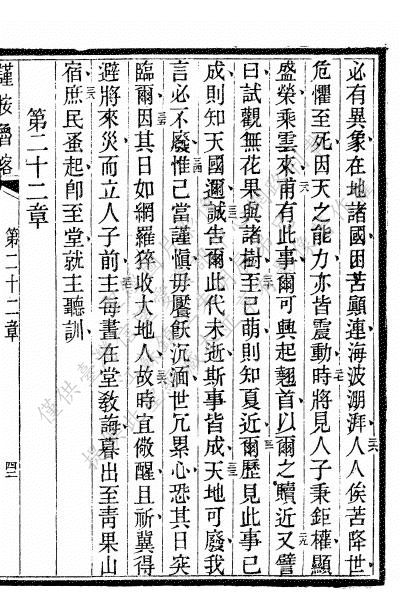 必有異象在地諸國困苦顚連海波湧湃人人俟苦降世
危懼至死因天之能力亦皆震動時將見人子秉鉅權顯
盛榮乘雲來甫有此事爾可興起翹首以爾之贖近又譬
曰試觀無花果與諸樹至已萌則知夏近爾歷見此事已
成則知天國邇誠告爾此代未逝斯事皆成天地可廢我
言必不廢惟己當謹愼毋饜飫沉湎世冗累心恐其日突
臨爾因其日如網羅猝收大地人故時宜儆醒且祈冀得
避將來災而立人子前主每晝在堂教誨暮出至青果山
宿庶民蚤起卽至堂就主聽訓
第二十二章
第二十二章